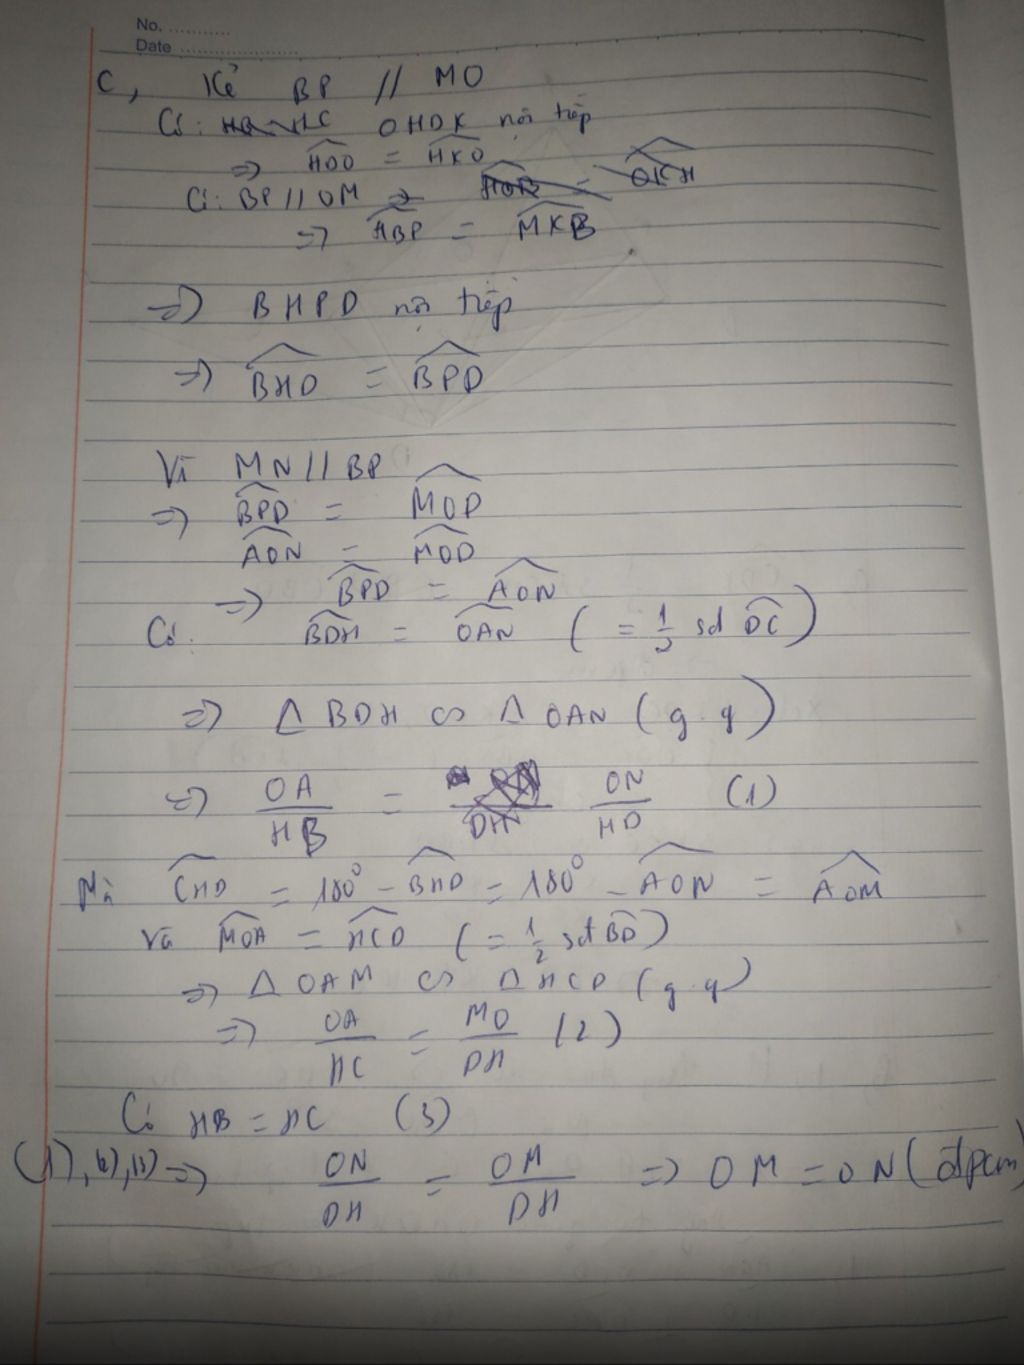 No. ............
Date ......................
C, Kẻ BP // MO
Có: OHDK nội tiếp
=> HDO = HKO
Có: BP // OM
=> HBP = MKB
=> BHPD nội tiếp
=> BHD = BPD
Vì MN // BP
=> BPD = MOD
AON = MOD
=> BPD = AON
Có: BDH = OAN ( = 1/2 sđ DC )
=> Δ BDH ∽ Δ OAN ( g.g )
=> OA/HB = ON/HD (1)
Mà CHD = 180° - BHD = 180° - AON = AOM
Và MOA = HCD ( = 1/2 sđ BD )
=> Δ OAM ∽ Δ HCD ( g.g )
=> OA/HC = MO/DH (2)
Có HB = HC (3)
(1), (2), (3) => ON/DH = OM/DH => OM = ON ( đpcm )